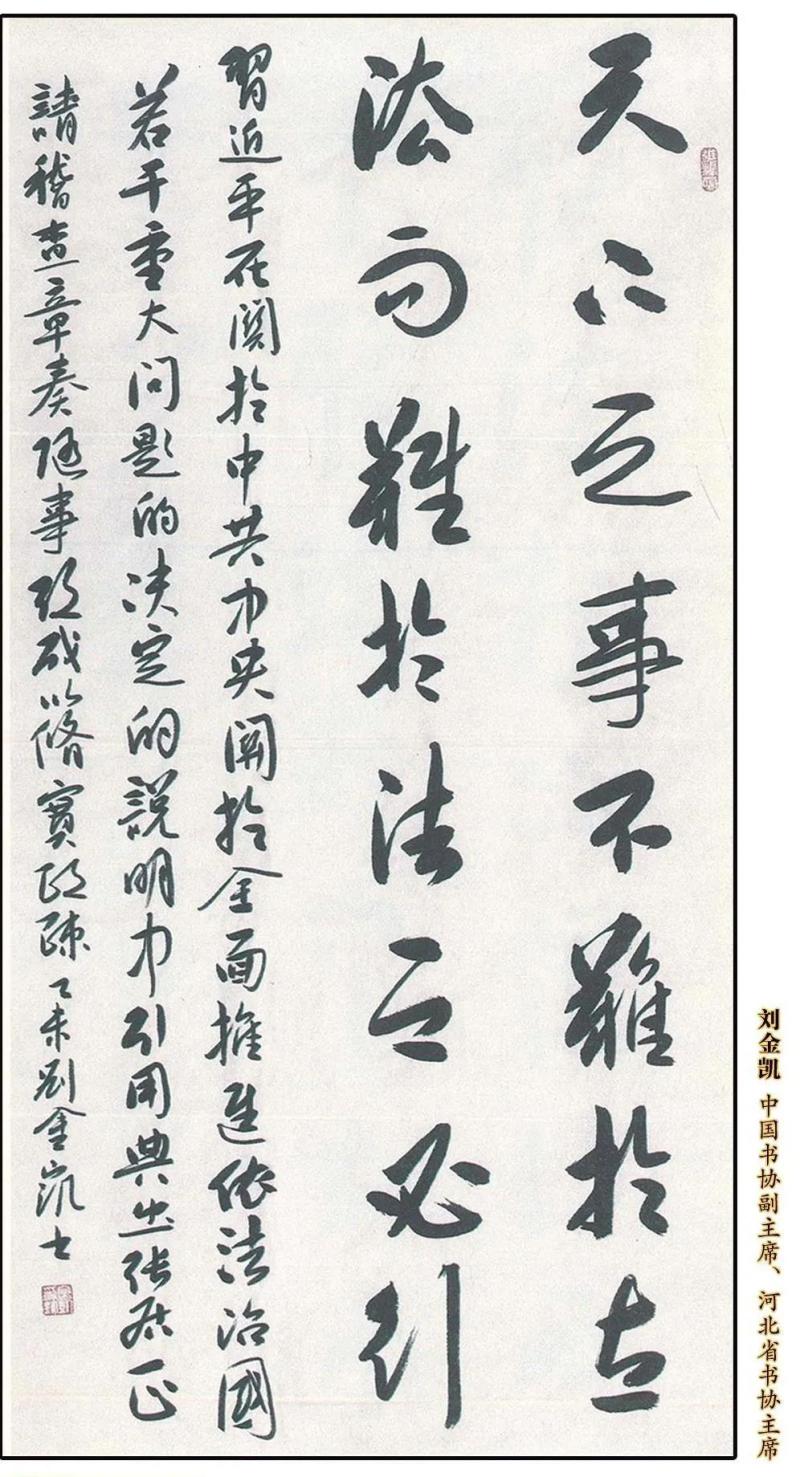 天下之事不難於立
法而難於法之必行
習近平在關於中共中央關於全面推進依法治國
若干重大问題的決定的説明中引用典出張居正
請稽查章奏隨事考成以脩實政疏 乙未劉金凱書
刘金凯 中国书协副主席、河北省书协主席